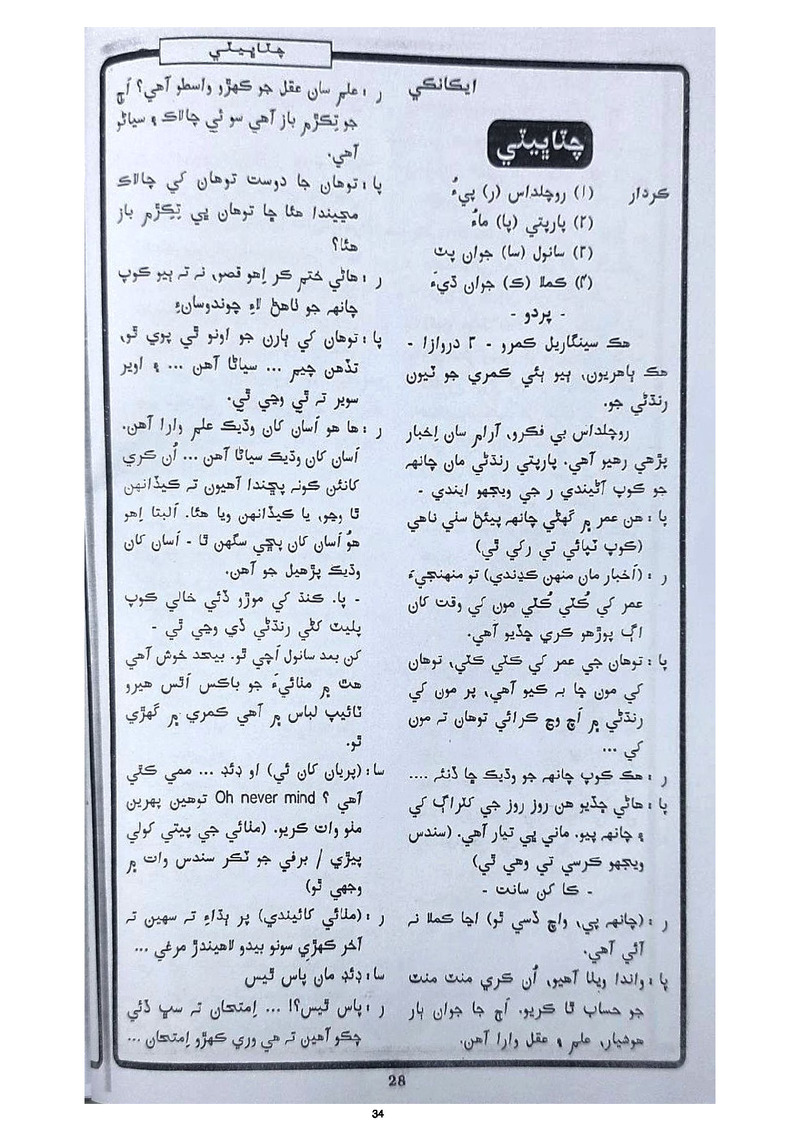 چٽاڀيٽي
ايڪانڪي
چٽاڀيٽي
ڪردار (١) روچلداس (ر) پيءُ
(٢) پارپتي (پا) ماءُ
(٣) سانول (سا) جوان پٽ
(۴) ڪملا (ڪ) جوان ڌيءَ
- پردو -
هڪ سينگاريل ڪمرو - ٢ دروازا -
هڪ ٻاهريون، ٻيو ٻئي ڪمري جو ٽيون
رنڌڻي جو.
روچلداس بي فڪرو، آرام سان اِخبار
پڙهي رهيو آهي. پارپتي رنڌڻي مان چانهه
جو ڪوپ آڻيندي ر جي ويجهو ايندي -
پا : هن عمر ۾ گهڻي چانهه پيئڻ سٺي ناهي
(ڪوپ ٽپائي تي رکي ٿي)
ر : (اَخبار مان منهن ڪڍندي) تو منهنجيءَ
عمر کي ڪُٽي ڪُٽي مون کي وقت کان
اڳ پوڙهو ڪري ڇڏيو آهي.
پا : توهان جي عمر کي ڪٽي ڪٽي، توهان
کي مون ڇا بہ ڪيو آهي، پر مون کي
رنڌڻي ۾ اَچ وڃ ڪرائي توهان تہ مون
کي ...
ر : هڪ ڪوپ چانهه جو وڌيڪ ڇا ڏنئہ ....
پا : هاڻي ڇڏيو هن روز روز جي کٽراڳ کي
۽ چانهه پيو. ماني ڀي تيار آهي. (سندس
ويجهو ڪرسي تي وهي ٿي)
- ڪا کن سانت -
ر : (چانهه پي، واچ ڏسي ٿو) اڃا ڪملا نہ
آئي آهي.
پا : واندا ويلا آهيو، اُن ڪري منٽ منٽ
جو حساب ٿا ڪريو. اَڄ جا جوان ٻار
هوشيار، علم ۽ عقل وارا آهن.
ر : علم سان عقل جو ڪهڙو واسطو آهي؟ اَڄ
جو تِڪڙم باز آهي سو ئي چالاڪ ۽ سياڻو
آهي.
پا : توهان جا دوست توهان کي چالاڪ
مڃيندا هئا ڇا توهان ڀي تِڪڙم باز
هئا؟
ر : هاڻي ختم ڪر اِهو قصو، نہ تہ ٻيو ڪوپ
چانهه جو ٺاهڻ لاءِ چوندوسانءِ
پا : توهان کي ٻارن جو اونو ٿي پوي ٿو،
تڏهن چيم ... سياڻا آهن ... ۽ اوير
سوير تہ ٿي وڃي ٿي.
ر : ها هو اَسان کان وڌيڪ علم وارا آهن.
اَسان کان وڌيڪ سياڻا آهن ... اُن ڪري
کانئن ڪونہ پڇندا آهيون تہ ڪيڏانهن
ٿا وڃو، يا ڪيڏانهن ويا هئا. اَلبتا اِهو
هوُ اَسان کان پڇي سگهن ٿا - اَسان کان
وڌيڪ پڙهيل جو آهن.
- پا. ڪنڌ کي موڙو ڏئي خالي ڪوپ
پليٽ کڻي رنڌڻي ڏي وڃي ٿي -
کن بعد سانول اَچي ٿو. بيحد خوش آهي
هٿ ۾ مٺائيءَ جو باڪس اَٿس هيرو
ٽائيپ لباس ۾ آهي ڪمري ۾ گهڙي
ٿو.
سا : (پريان کان ئي) او ڊئڊ ... ممي ڪٿي
آهي ؟ Oh never mind توهين پهرين
مٺو وات ڪريو. (مٺائي جي پيتي کولي
پيڙي / برفي جو ٽڪر سندس وات ۾
وجهي ٿو)
ر : (مٺائي کائيندي) پر ٻڌاءِ تہ سهين تہ
آخر ڪهڙي سونو بيدو لاهيندڙ مرغي ...
سا : ڊئڊ مان پاس ٿيس
ر : پاس ٿيس؟! ... اِمتحان تہ سڀ ڏئي
چڪو آهين تہ هي وري ڪهڙو اِمتحان ...
28
34